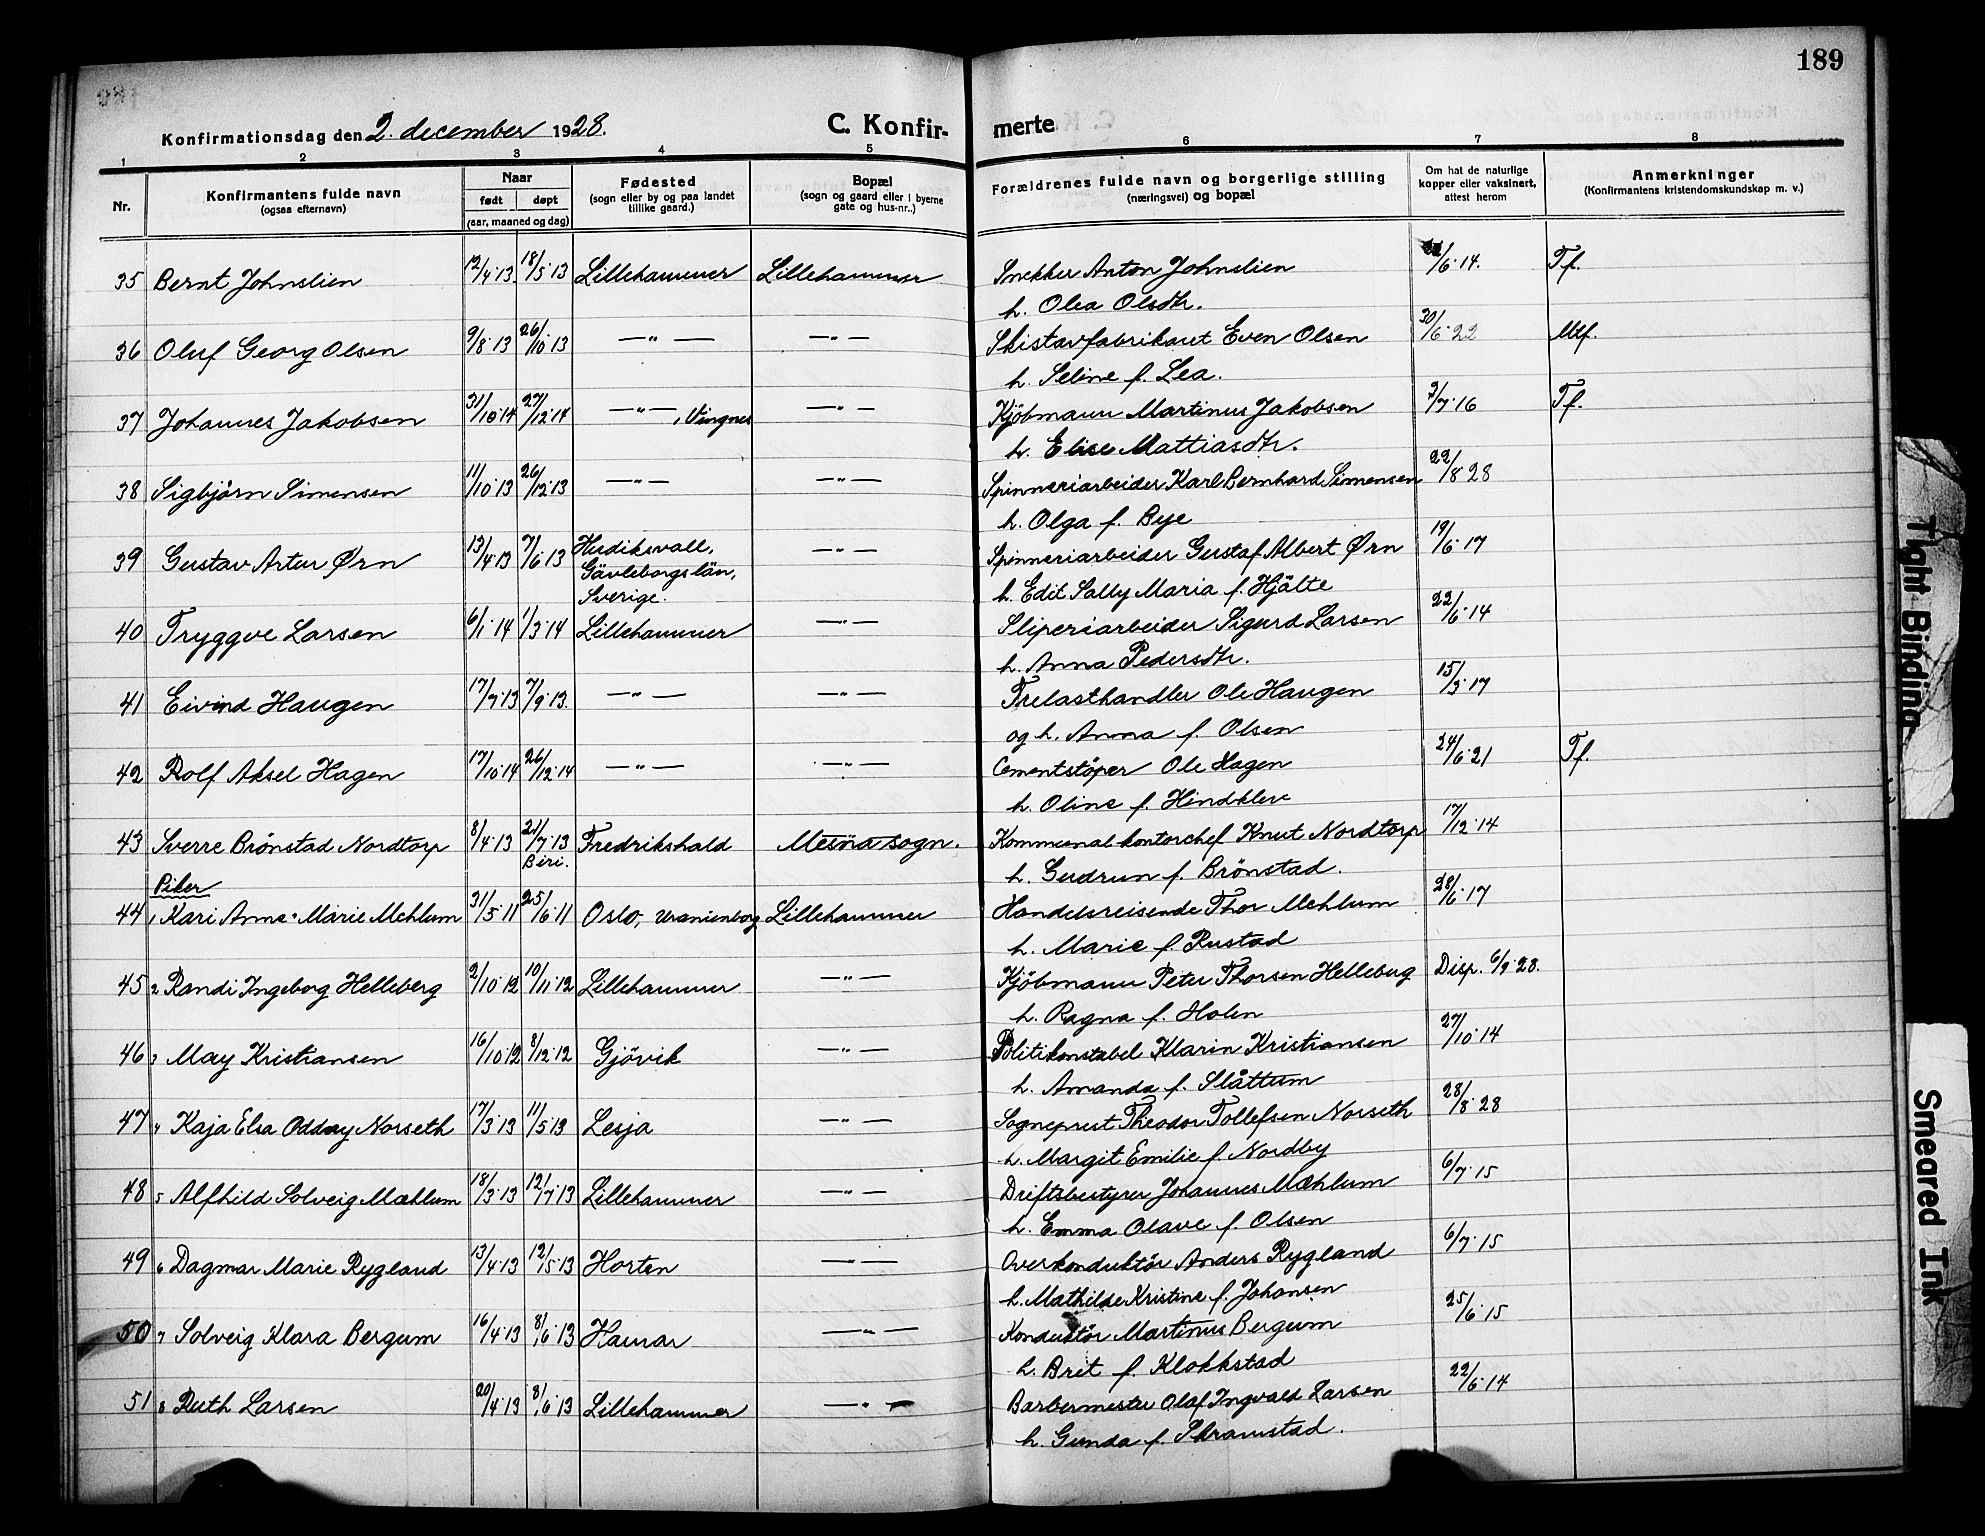 189
Konfirmationsdag den 2. december 1928.
C. Konfirmerte
1 2 3 4 5 6 7 8
Nr.
Konfirmantens fulde navn
(ogsaa efternavn)
Naar
født døpt
(aar, maaned og dag)
Fødested
(sogn eller by og paa landet
tillike gaard.)
Bopæl
(sogn og gaard eller i byerne
gate og hus-nr..)
Forældrenes fulde navn og borgerlige stilling
(næringsvei) og bopæl
Om hat de naturlige
kopper eller vaksinert,
attest herom
Anmerkninger
(Konfirmantens kristendomskundskap m. v.)
35 Bernt Johnslien 12/4·13 18/5·13 Lillehammer Lillehammer Snekker Anton Johnslien /6·14. Tf.
h. Olea Olsdtr.
36 Oluf Georg Olsen 9/8·13 26/10·13 —"— —"— Skistavfabrikant Even Olsen 30/6·22 Mtf.
h. Seline f. Lea.
37 Johannes Jakobsen 31/10·14 27/12·14 —"—, Vingnes —"— Kjöbmann Martinus Jakobsen 3/7·16 Tf.
h. Elise Mattiasdtr.
38 Sigbjörn Simensen 11/10·13 26/12·13 —"— —"— Spinneriarbeider Karl Bernhard Simensen 22/8·28
h. Olga f. Bye
39 Gustav Artur Ørn 13/4·13 7/6·13 Hudiksvall, —"— Spinneriarbeider Gustaf Albert Ørn 19/6·17
Gävleborgs län,
Sverige.
h. Edit Sally Maria f. Hjälte
40 Tryggve Larsen 6/1·14 1/3·14 Lillehammer —"— Sliperiarbeider Sigurd Larsen 22/6·14
h. Anna Pedersdtr.
41 Eivind Haugen 17/7·13 7/9·13. —"— —"— Trelasthandler Ole Haugen 15/3·17
og h. Anna f. Olsen
42 Rolf Aksel Hagen 17/10·14 26/12·14 —"— —"— Cementstöper Ole Hagen 24/6·21 Tf.
h. Oline f. Hindklev
43 Sverre Brönstad Nordtorp 8/4·13 21/7·13 Fredrikshald Mesna sogn. Kommunal kontorchef Knut Nordtorp 17/12·14
Biri.
h. Gudrun f. Brönstad.
Piker
44 1 Kari Anna-Marie Mehlum 31/5·11 25/6·11 Oslo, Uranienborg Lillehammer Handelsreisende Thor Mehlum 28/6·17
h. Marie f. Rustad
45 2 Randi Ingeborg Helleberg 2/10·12 10/11·12 Lillehammer —"— Kjöbmann Peter Thorsen Helleberg Disp. 6/9·28.
h. Ragna f. Holen
46 3 May Kristiansen 16/10·12 8/12·12 Gjövik —"— Politikonstabel Klarin Kristiansen 27/10·14
h. Amanda f. Slåttum
47 4 Kaja Elsa Oddny Norseth 17/3·13 11/5·13 Lesja —"— Sogneprest Theodor Tollefsen Norseth 28/8·28
h. Margit Emilie f. Nordby
48 5 Alfhild Solveig Mæhlum 18/3·13 12/7·13 Lillehammer —"— Driftsbestyrer Johannes Mæhlum 6/7·15
h. Emma Olave f. Olsen
49 6 Dagmar Marie Rygland 13/4·13 12/5·13 Horten —"— Overkonduktör Anders Rygland 6/7·15
h. Mathilde Kristine f. Johansen
50 7 Solveig Klara Bergum 16/4·13 8/6·13 Hamar —"— Konduktör Martinus Bergum 25/6·15
h. Brit f. Klokkstad
51 8 Ruth Larsen 20/4·13 8/6·13 Lillehammer —"— Barbermester Olaf Ingvald Larsen 22/6·14
h. Gunda f. Skramstad.
Tight Binding
Smeared Ink